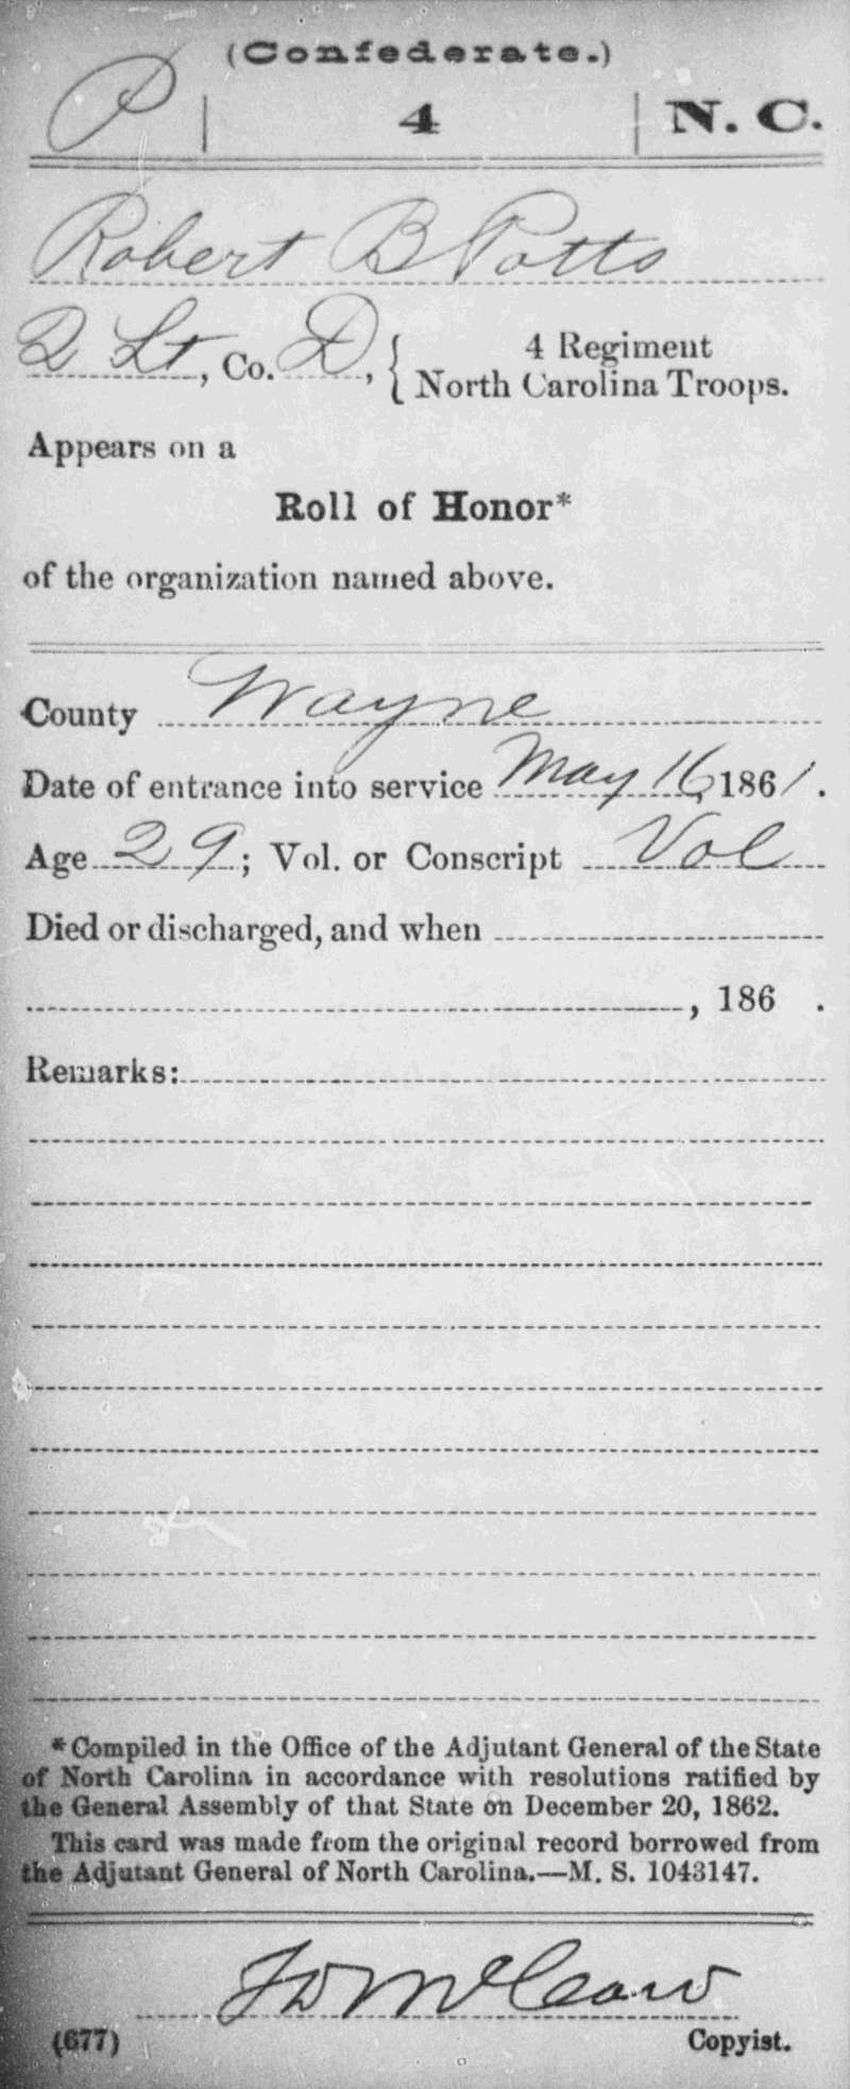 (Confederate.)
P | 4 | N. C.
Robert B Potts
2 Lt, Co. D, { 4 Regiment
North Carolina Troops.
Appears on a
Roll of Honor*
of the organization named above.
County Wayne
Date of entrance into service May 16, 1861.
Age 29; Vol. or Conscript Vol
Died or discharged, and when
, 186 .
Remarks:
*Compiled in the Office of the Adjutant General of the State
of North Carolina in accordance with resolutions ratified by
the General Assembly of that State on December 20, 1862.
This card was made from the original record borrowed from
the Adjutant General of North Carolina.—M. S. 1043147.
(677)
Copyist.